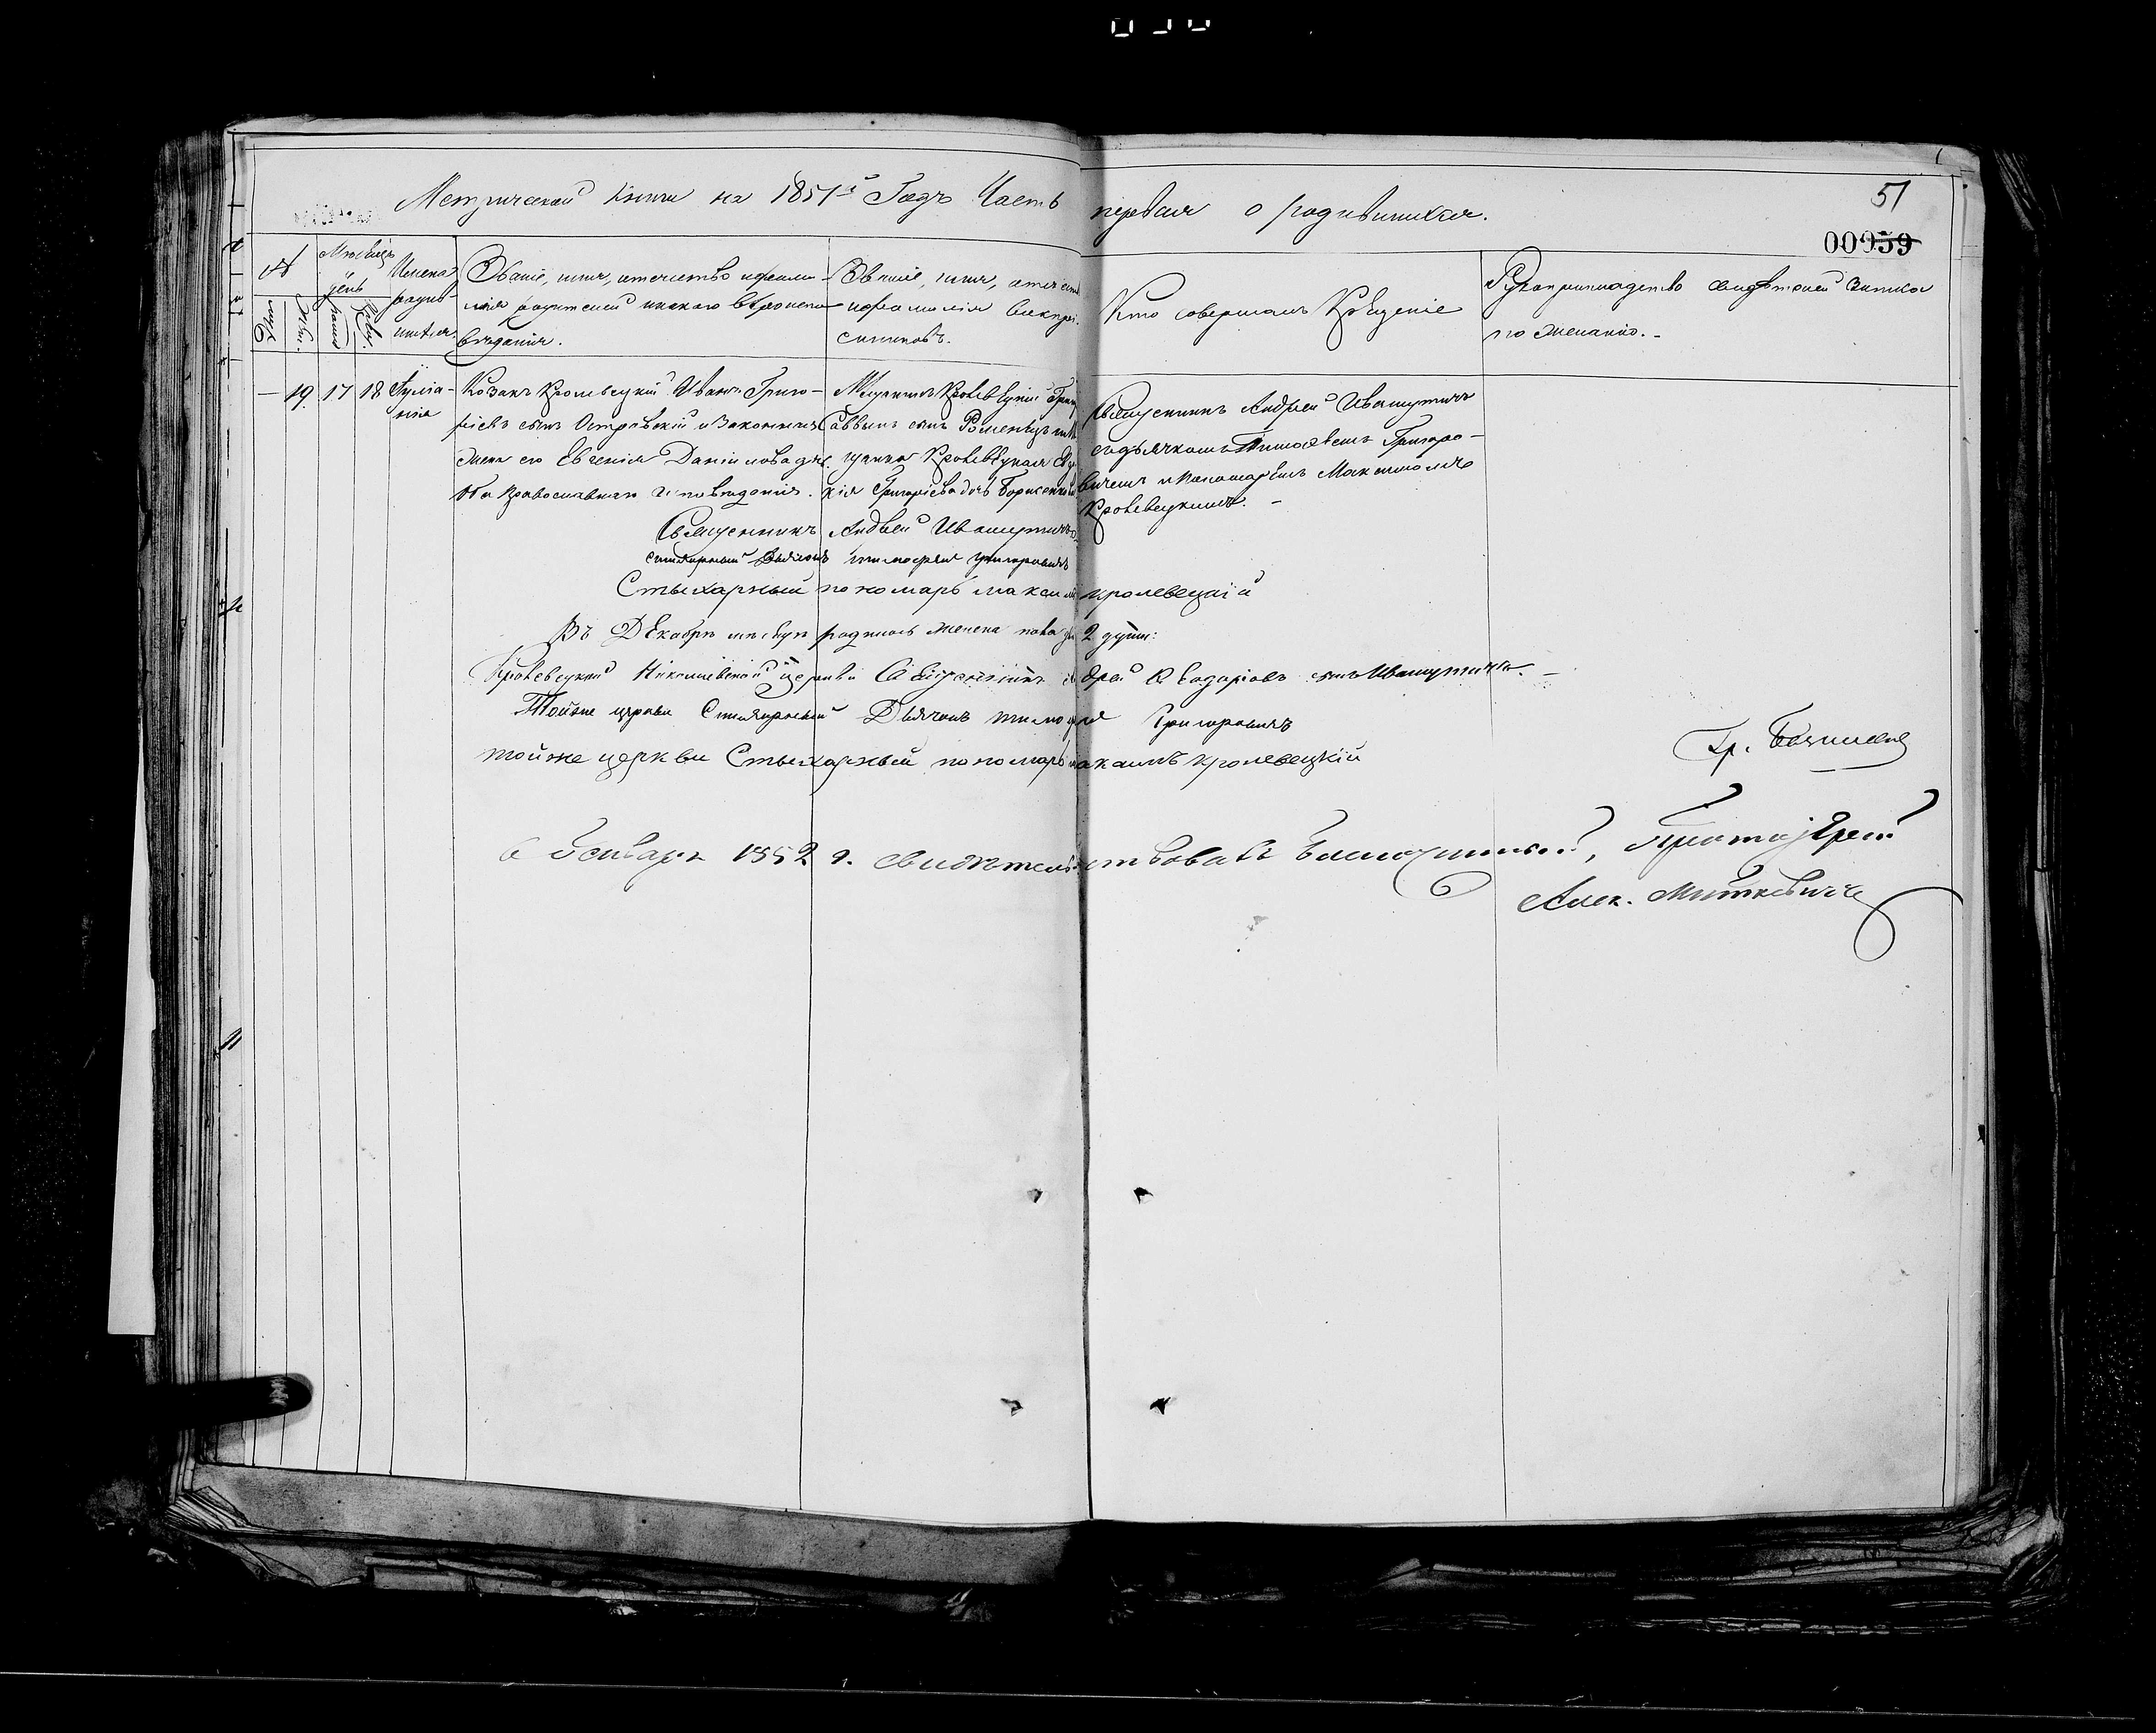 51
00959
Метрической книги на 1851й Годъ Часть первая о родившихся.
№
муж.
жен.
Месяцъ
день
рожд.
крещ.
Имена
родив-
шихся.
Званіе, имя, отчество и фами-
лія родителей и какого веро испо-
веданія.
Званіе, имя, отчество
и фамилія воспріе-
мниковъ.
Кто совершалъ Крещеніе
Рукоприкладство свидетелей записи
по желанію.
— 19. 17 18
Іуліа-
нія
Козакъ Кролевецкій Иванъ Григо-
ріевъ сынъ Островскій и Законная
жена его Евгенія Даніиловадчь.
Оба Православнаго исповеданія.
Мещанинъ Кролевецкій
Саввинъ сынъ Роменецъ
щанка Кролевецкая
кія Григоріева дчь
Священникъ Андрей Ивашутичъ
содьячкомъ Тимофеемъ Григоро-
вичемъ и Пономаремъ Максимомъ
Кролевецкимъ. –
Священникъ Андрей Ивашутичъ
Стихарный Дьячокъ тимофей григоровичъ
Стыхарный пономарь максимъ кролевецкій
Въ Декабре месяце родилось женска пола 2 души:
Кролевецкой Николаевской церкви Священникъ Андрей сынъ Ивашутичъ. –
Тойже церкви Стихарный Дьячокъ тимофей Григоровичъ
тойже церкви Стыхарный пономарь максимъ кролевецкій
6 Генваря 1852 г. свидетельствовалъ Благочинный, Протоіерей
Алек. Миткевичъ